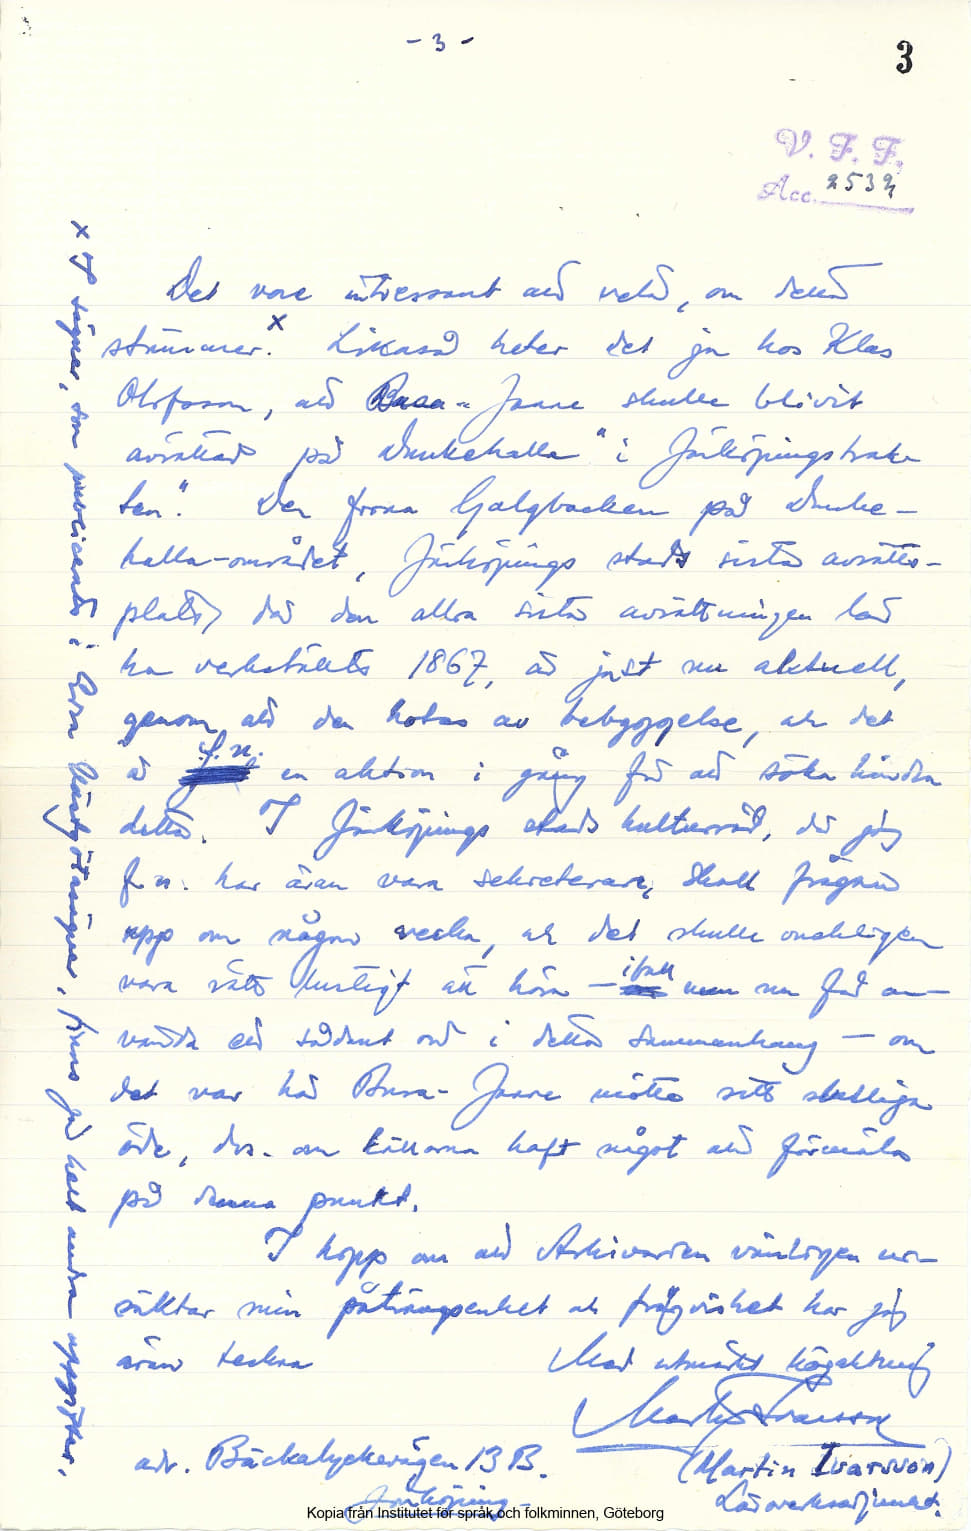 - 3 -
3
V. F. F.
Acc. 2532
Det vore intressant att veta, om detta
stämmer.x Likaså heter det ju hos Klas
Olofsson, att Busa-Janne skulle blivit
avrättad på Dunkehalla "i Jönköpingstrak-
ten". Den forna Galgbacken på Dunke-
halla-området, Jönköpings stads sista avrätts-
plats, där den allra sista avrättningen lär
ha verkställts 1867, är just nu aktuell,
genom att den hotas av bebyggelse, och det
är f.n. en aktion i gång för att söka hindra
detta. I Jönköpings stads kulturråd, där jag
f.n. har äran vara sekreterare, skall frågan
upp om någon vecka, och det skulle onekligen
vara rätt lustigt att höra - ifall man nu får an-
vända ett sådant ord i detta sammanhang - om
det var här Busa-Janne mötte sitt slutliga
öde, dvs. om källorna haft något att förmäla
på denna punkt.
I hopp om att Arkivarien vänligen ur-
säktar min påträngsenhet och frågvishet har jag
äran teckna
Med utmärkt högaktning
Martin Ivarsson
(Martin Ivarsson)
Läroverksadjunkt.
adr. Bäckalyckevägen 13 B.
Jönköping
x I sägner, som publicerats i Era Västgötasägner, finns ju helt andra uppgifter.
Kopia från Institutet för språk och folkminnen, Göteborg